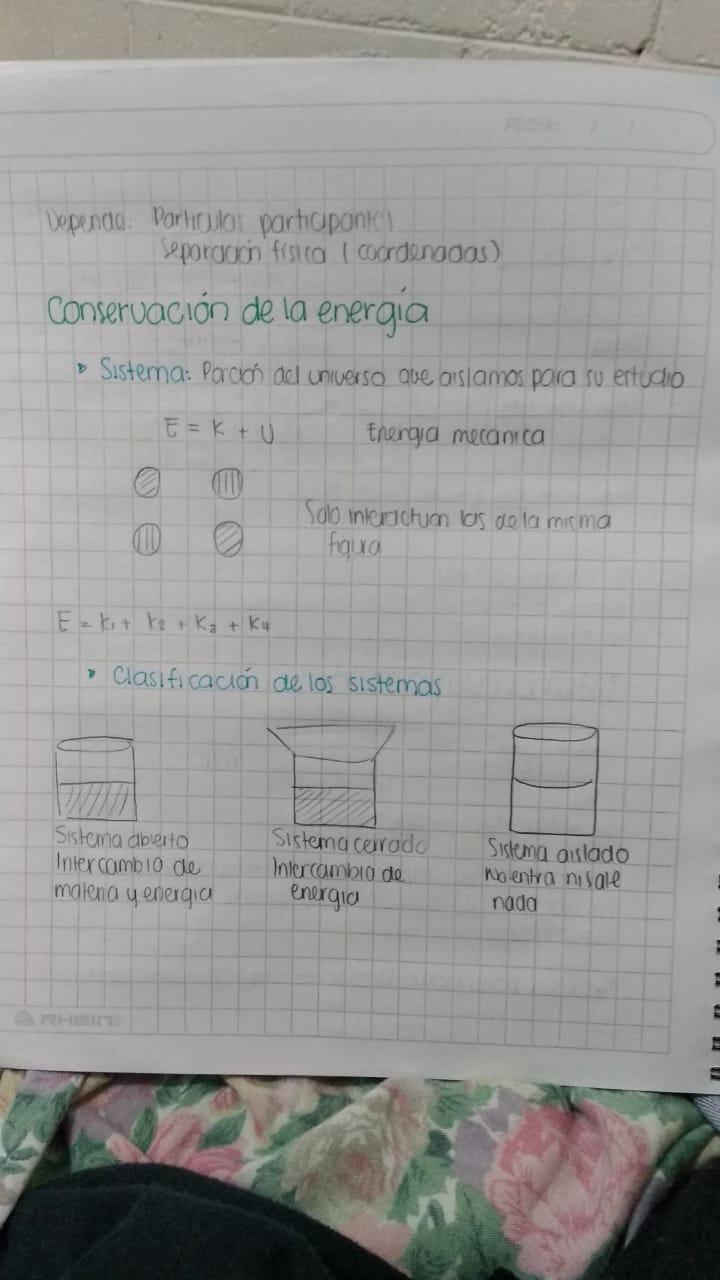 FECHA: / /
Depende: Particulas participantes
Separación física (coordenadas)
Conservación de la energía
Sistema: Porción del universo que aislamos para su estudio
E = K + U Energía mecanica
Solo interactuan las de la misma
figura
E = K1 + K2 + K3 + K4
Clasificación de los sistemas
Sistema abierto
Intercambio de
materia y energia
Sistema cerrado
Intercambio de
energia
Sistema aislado
No entra ni sale
nada
RHEIN